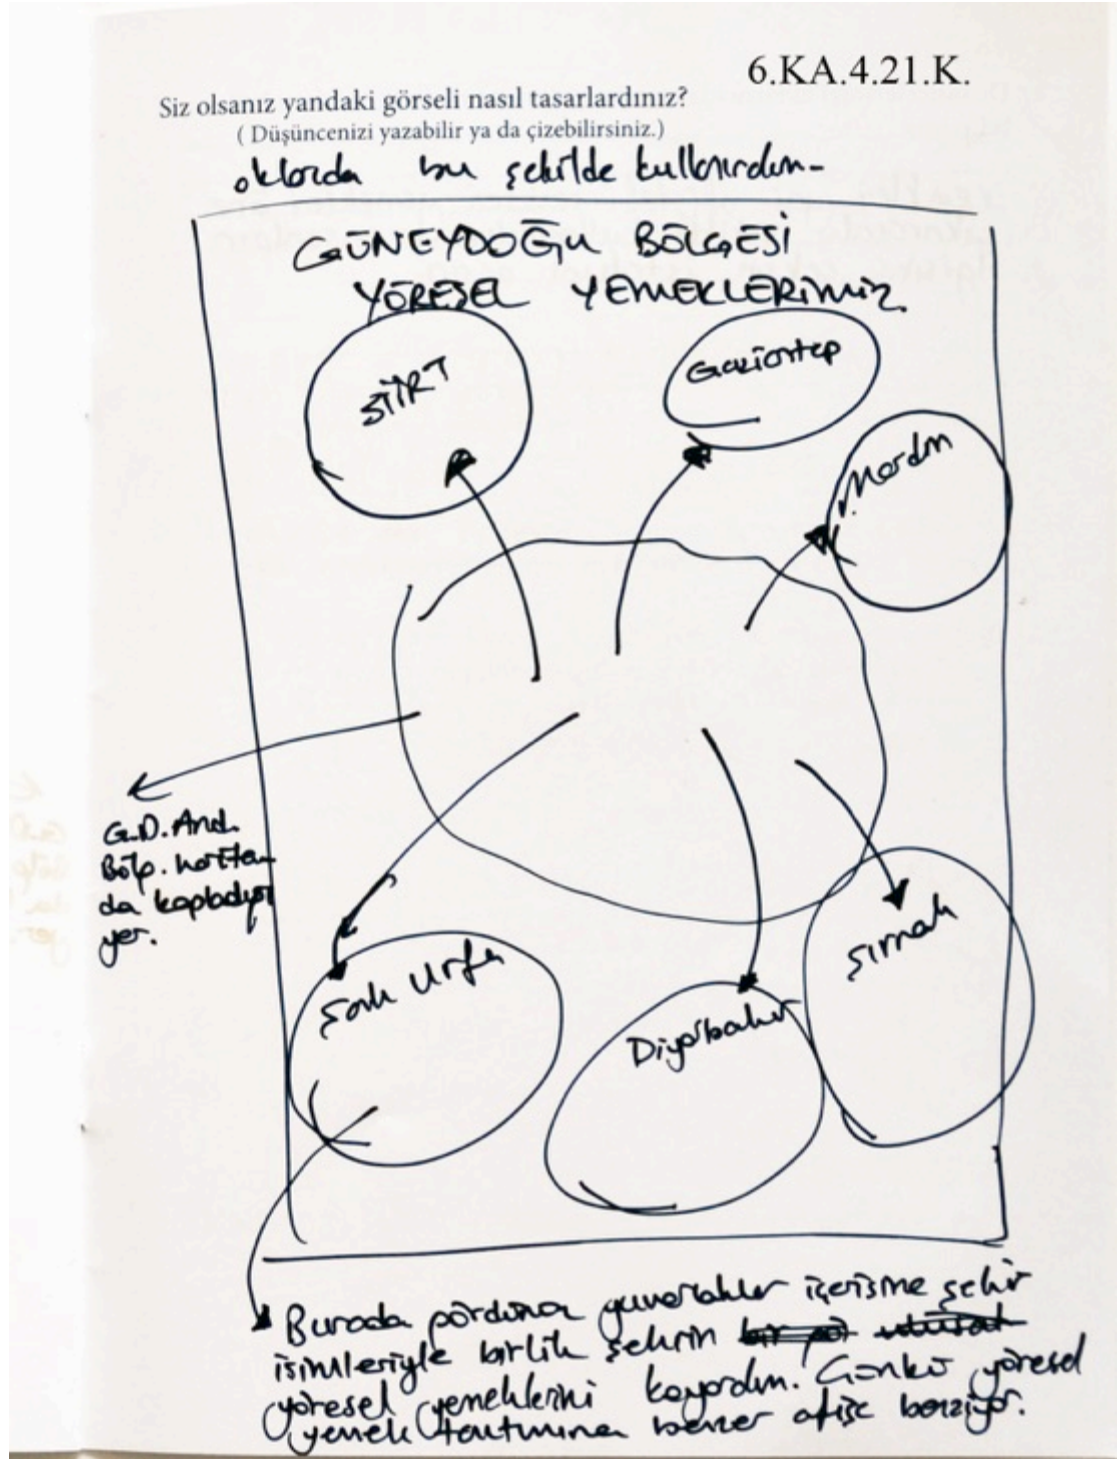 6.KA.4.21.K.
Siz olsanız yandaki görseli nasıl tasarlardınız?
( Düşüncenizi yazabilir ya da çizebilirsiniz.)
oklarda bu şekilde kullanırdım-
GÜNEYDOĞU BÖLGESİ
YÖRESEL YEMEKLERİMİZ
SİİRT
Gaziantep
Mardin
G.D.And.
Bölg. haritan
da kapladığı
yer.
Şanlı Urfa
Diyarbakır
Şırnak
Burada gördüğün yuvarlaklar içerisine şehir
isimleriyle birlik şehrin
yöresel yemeklerini koyardım. Çünkü yöresel
yemek tanıtımına benzer afişe benziyor.